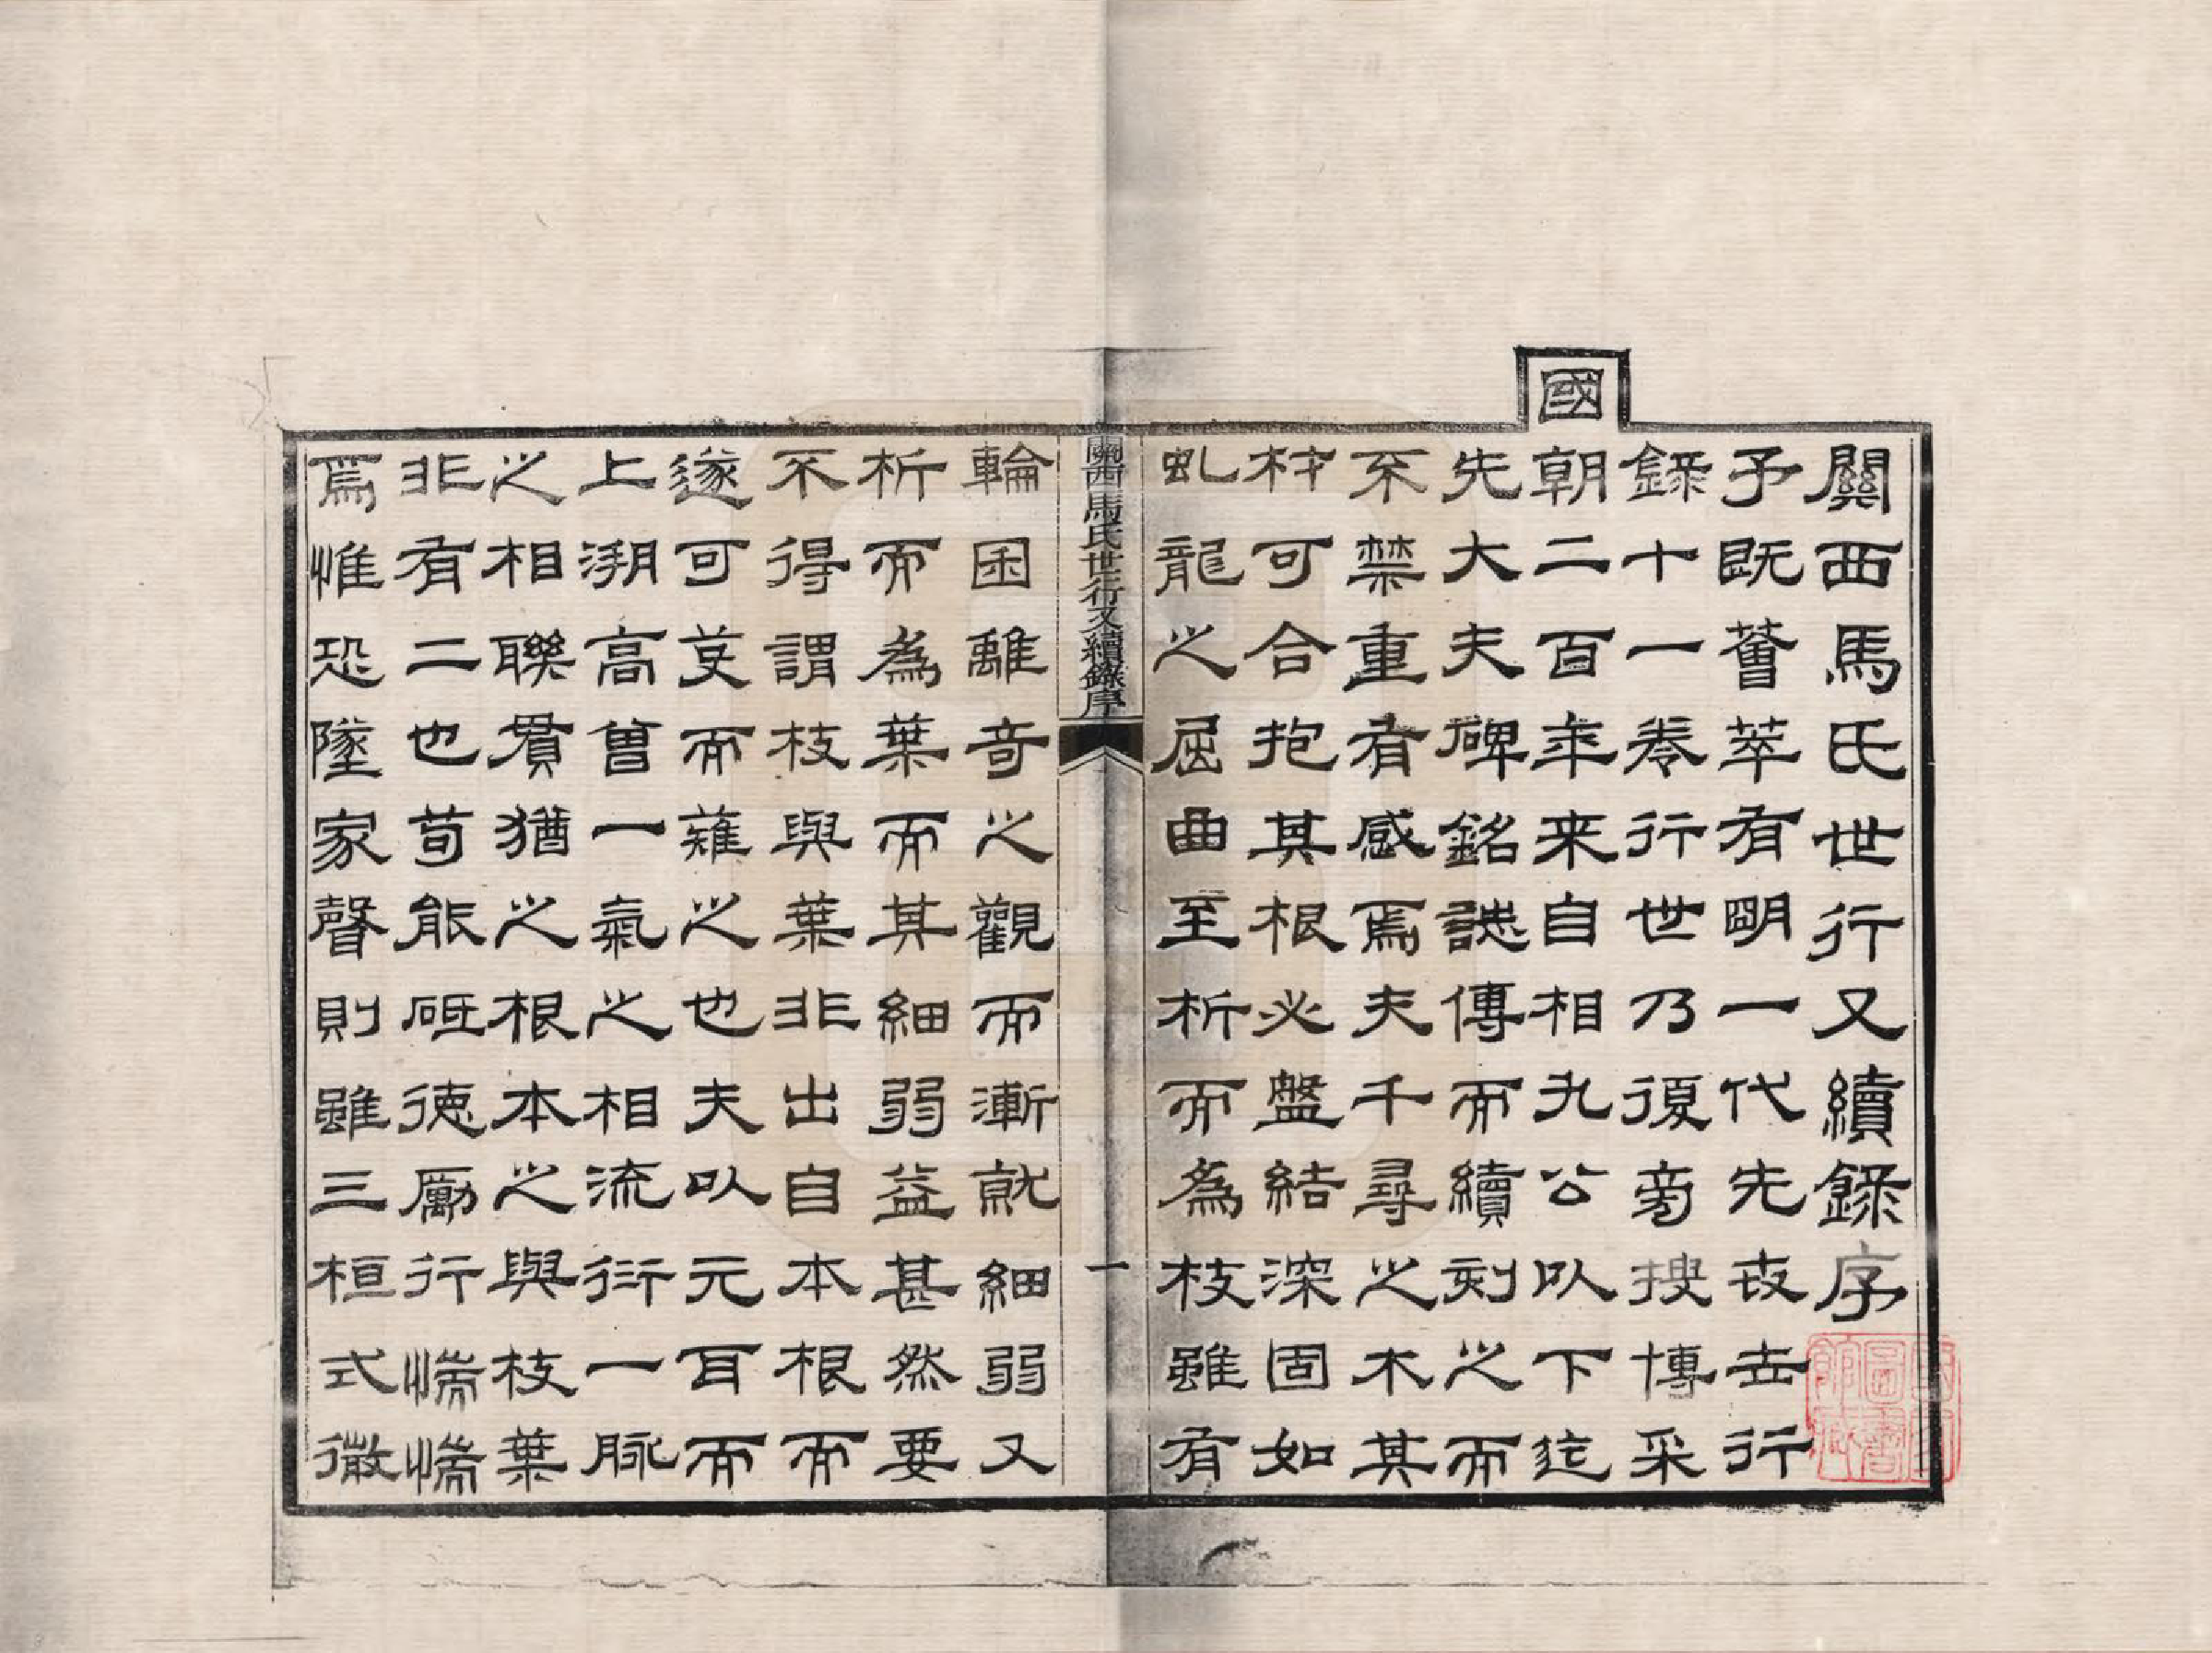 關西馬氏世行又續錄序
予既薈萃有明一代先丗去行
錄十一卷行世乃復旁搜博采
國
朝二百年来自相九公以下迄
先大夫碑銘誌傳而續刻之而
不禁重有感焉夫千尋之木其
材可合抱其根必盤結深固如
虬龍之屈曲至析而為枝雖有
關西馬氏世行又續錄序
一
輪囷離奇之觀而漸就細弱又
析而為葉而其細弱益甚然要
不得謂枝與葉非出自本根而
遂可芟而薙之也夫以元耳而
上溯高曾一氣之相流衍一脉
之相聯貫猶之根本之與枝葉
非有二也苟能砥德厲行惴惴
焉惟恐墜家聲則雖三桓式微